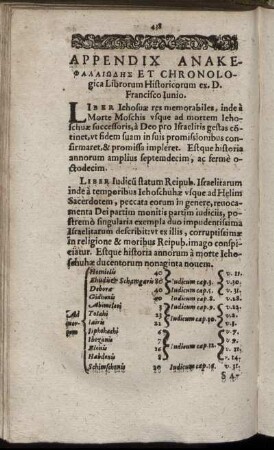 438
APPENDIX ANAKE-
ΦΑΛΑΙΩΔΗΣ ET CHRONOLO-
gica Librorum Historicorum ex. D.
Francisco Iunio.
LIBER Iehosuæ res memorabiles, inde à
Morte Moschis vsque ad mortem Ieho-
schuæ successoris, à Deo pro Israelitis gestas cō-
tinet, vt fidem suam in suis promissionibus con-
firmaret, & promissis impleret. Estque historia
annorum amplius septemdecim, ac fermè o-
ctodecim.
LIBER Iudicū statum Reipub. Israelitarum
inde à temporibus Iehoschuhæ vsque ad Helim
Sacerdotem, peccata eorum in genere, reuoca-
menta Dei partim monitis partim iudiciis, po-
stremò singularia exempla duo impudentissima
Israelitarum describit: vt ex illis, corruptissimæ
in religione & moribus Reipub. imago conspi-
ciatur. Estque historia annorum à morte Ieho-
schuhæ ducentorum nonaginta nouem.
Homielis 40 v. 11.
Ehudis & Schamgaris 80 Iudicum cap. 3. v. 30.
Deboræ 40 Iudicum cap. 5. v. 31.
Gidhonis 40 v. 28.
Abimelec 3 v. 22.
Tolahi 23 v. 2.
Iairis 22 Iudicum cap. 10. v. 3.
Iiphthachi 6 v. 7.
Ibozanis 7 v. 9.
Elonis 10 Iudicum cap. 12. v. 11.
Habdonis 8 v. 14.
Schimschonis 20 Iudicum cap. v. 31.